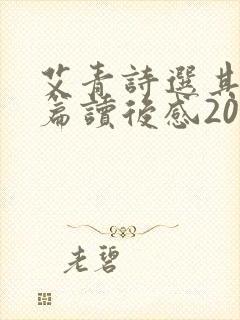 艾青詩選其
篇讀後感20
老碧